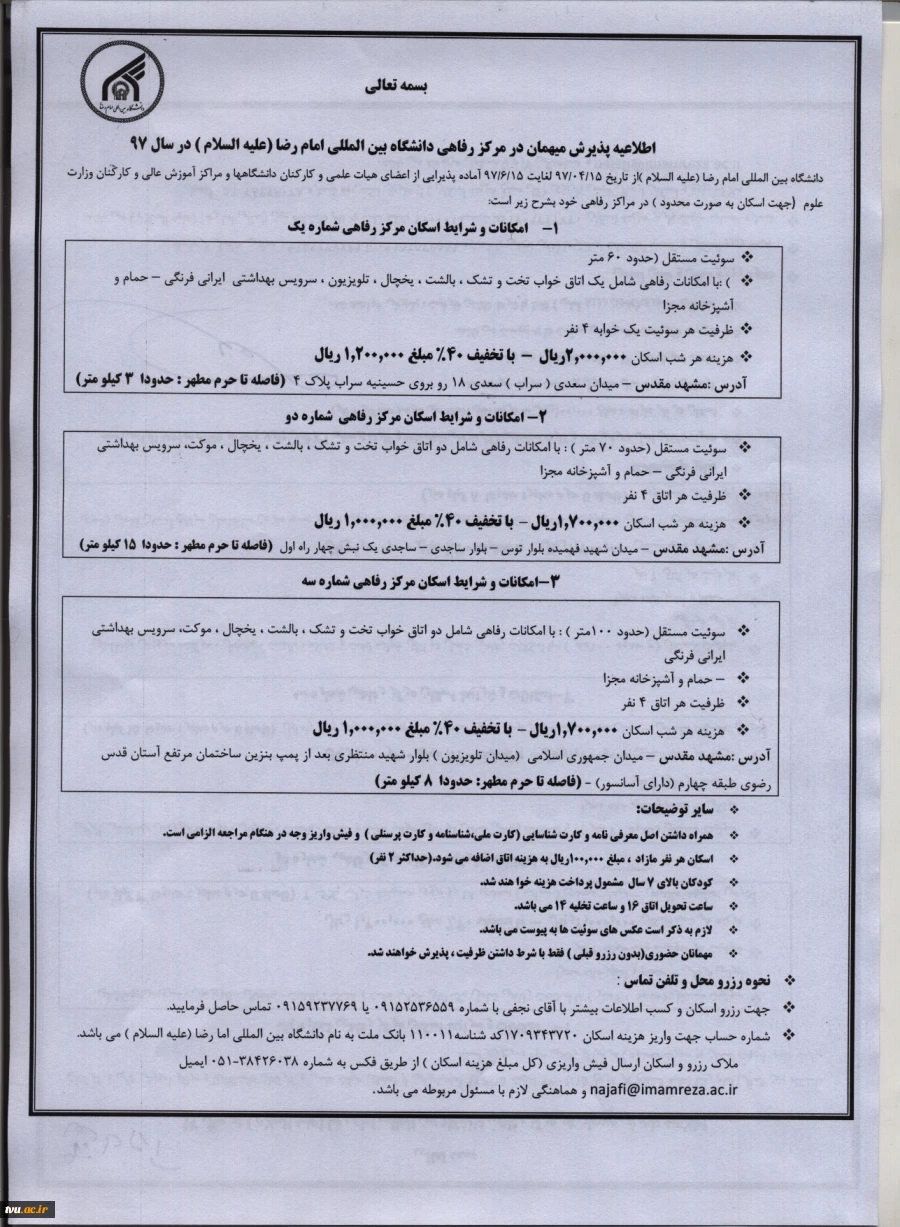 بسمه تعالی
اطلاعیه پذیرش میهمان در مرکز رفاهی دانشگاه بین المللی امام رضا (علیه السلام ) در سال ۹۷
دانشگاه بین المللی امام رضا (علیه السلام )از تاریخ ۹۷/۰۴/۱۵ لغایت ۹۷/۶/۱۵ آماده پذیرایی از اعضای هیات علمی و کارکنان دانشگاهها و مراکز آموزش عالی و کارکنان وزارت
علوم (جهت اسکان به صورت محدود ) در مراکز رفاهی خود بشرح زیر است:
۱- امکانات و شرایط اسکان مرکز رفاهی شماره یک
❖ سوئیت مستقل (حدود ۶۰ متر
❖ ) :با امکانات رفاهی شامل یک اتاق خواب تخت و تشک ، بالشت ، یخچال ، تلویزیون ، سرویس بهداشتی ایرانی فرنگی – حمام و
آشپزخانه مجزا
❖ ظرفیت هر سوئیت یک خوابه ۴ نفر
❖ هزینه هر شب اسکان ۲,۰۰۰,۰۰۰ریال – با تخفیف ۴۰٪ مبلغ ۱,۲۰۰,۰۰۰ ریال
آدرس :مشهد مقدس – میدان سعدی ( سراب ) سعدی ۱۸ رو بروی حسینیه سراب پلاک ۴ (فاصله تا حرم مطهر : حدودا ۳ کیلو متر)
۲- امکانات و شرایط اسکان مرکز رفاهی شماره دو
❖ سوئیت مستقل (حدود ۷۰ متر ) : با امکانات رفاهی شامل دو اتاق خواب تخت و تشک ، بالشت ، یخچال ، موکت، سرویس بهداشتی
ایرانی فرنگی – حمام و آشپزخانه مجزا
❖ ظرفیت هر اتاق ۴ نفر
❖ هزینه هر شب اسکان ۱,۷۰۰,۰۰۰ریال – با تخفیف ۴۰٪ مبلغ ۱,۰۰۰,۰۰۰ ریال
آدرس :مشهد مقدس – میدان شهید فهمیده بلوار توس – بلوار ساجدی – ساجدی یک نبش چهار راه اول (فاصله تا حرم مطهر : حدودا ۱۵ کیلو متر)
۳-امکانات و شرایط اسکان مرکز رفاهی شماره سه
❖ سوئیت مستقل (حدود ۱۰۰متر ) : با امکانات رفاهی شامل دو اتاق خواب تخت و تشک ، بالشت ، یخچال ، موکت، سرویس بهداشتی
ایرانی فرنگی
❖ – حمام و آشپزخانه مجزا
❖ ظرفیت هر اتاق ۴ نفر
❖ هزینه هر شب اسکان ۱,۷۰۰,۰۰۰ریال – با تخفیف ۴۰٪ مبلغ ۱,۰۰۰,۰۰۰ ریال
آدرس :مشهد مقدس – میدان جمهوری اسلامی (میدان تلویزیون ) بلوار شهید منتظری بعد از پمپ بنزین ساختمان مرتفع آستان قدس
رضوی طبقه چهارم (دارای آسانسور) - (فاصله تا حرم مطهر: حدودا ۸ کیلو متر)
❖ سایر توضیحات:
❖ همراه داشتن اصل معرفی نامه و کارت شناسایی (کارت ملی،شناسنامه و کارت پرسنلی ) و فیش واریز وجه در هنگام مراجعه الزامی است.
❖ اسکان هر نفر مازاد ، مبلغ ۱۰۰,۰۰۰ریال به هزینه اتاق اضافه می شود.(حداکثر ۲ نفر)
❖ کودکان بالای ۷ سال مشمول پرداخت هزینه خوا هند شد.
❖ ساعت تحویل اتاق ۱۶ و ساعت تخلیه ۱۴ می باشد.
❖ لازم به ذکر است عکس های سوئیت ها به پیوست می باشد.
❖ مهمانان حضوری(بدون رزرو قبلی ) فقط با شرط داشتن ظرفیت ، پذیرش خواهند شد.
❖ نحوه رزرو محل و تلفن تماس :
❖ جهت رزرو اسکان و کسب اطلاعات بیشتر با آقای نجفی با شماره ۰۹۱۵۲۵۳۶۵۵۹ یا ۰۹۱۵۹۲۳۷۷۶۹ تماس حاصل فرمایید.
❖ شماره حساب جهت واریز هزینه اسکان ۱۷۰۹۳۴۳۷۲۰کد شناسه۱۱۰۰۱۱ بانک ملت به نام دانشگاه بین المللی اما رضا (علیه السلام ) می باشد.
ملاک رزرو و اسکان ارسال فیش واریزی (کل مبلغ هزینه اسکان ) از طریق فکس به شماره ۳۸۴۲۶۰۳۸-۰۵۱ ایمیل
najafi@imamreza.ac.ir و هماهنگی لازم با مسئول مربوطه می باشد.
tvu.ac.ir